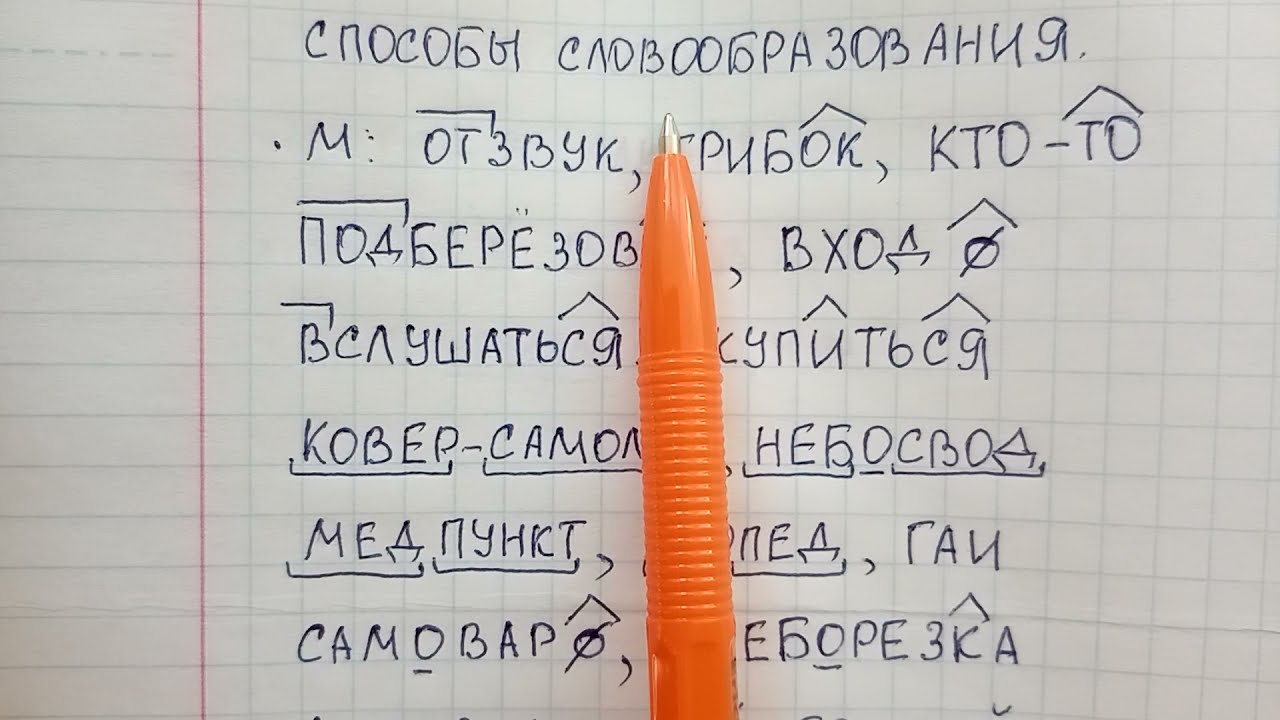 СПОСОБЫ СЛОВООБРАЗОВАНИЯ.
· М: ОТЗВУК, ГРИБОК, КТО-ТО
ПОДБЕРЁЗОВ , ВХОД Ø
ВСЛУШАТЬСЯ, КУПИТЬСЯ
КОВЕР-САМОЛ , НЕБОСВОД
МЕД ПУНКТ, ПЕД, ГАИ
САМОВАРØ, ЕБОРЕЗКА